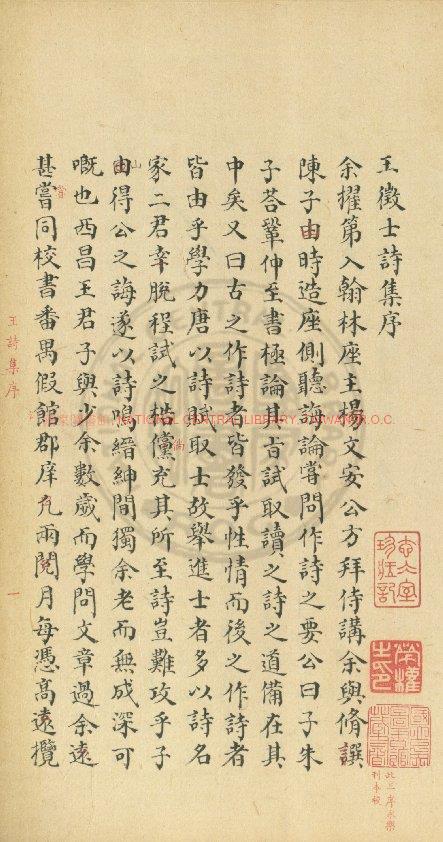 王徵士詩集序
余擢第入翰林座主楊文安公方拜侍講余與脩譔
陳子由時造座側聽誨論嘗問作詩之要公曰子朱
子荅鞏仲至書極論其旨試取讀之詩之道備在其
中矣又曰古之作詩者皆發乎性情而後之作詩者
皆由乎學力唐以詩賦取士故舉進士者多以詩名
家二君幸脫程試之拙儻充其所至詩豈難攻乎子
由得公之誨遂以詩鳴縉紳間獨余老而無成深可
嘅也西昌王君子與少余數歲而學問文章過余遠
甚嘗同校書番禺假館郡庠凢兩閱月每憑高遠攬
王詩集序
一
NATIONAL CENTRAL LIBRARY, TAIWAN R.O.C
此三序永樂
刊本校